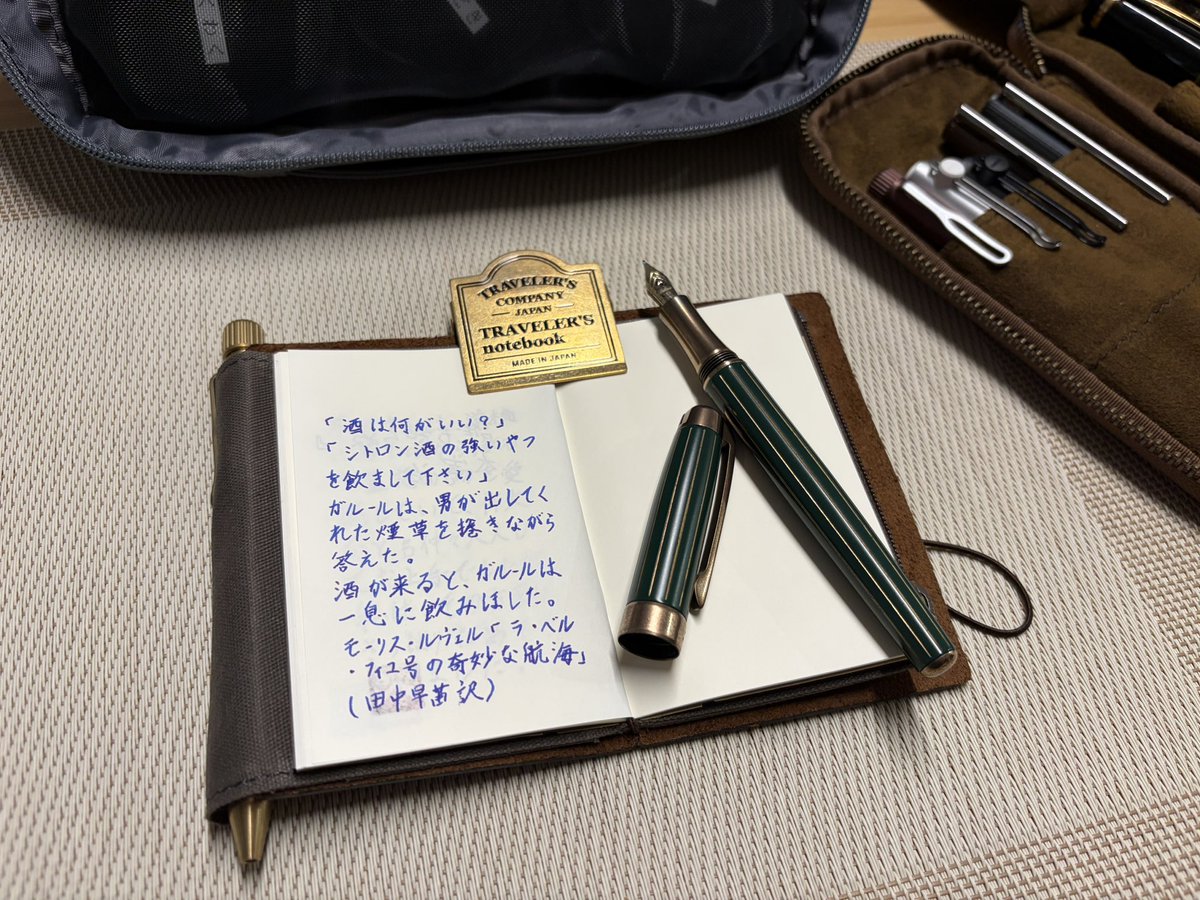 TRAVELER'S
COMPANY
JAPAN
TRAVELER'S
notebook
MADE IN JAPAN
「酒は何がいい？」
「シトロン酒の強いやつ
を飲まして下さい」
ガルールは、男が出してく
れた煙草を捲きながら
答えた。
酒が来ると、ガルールは
一息に飲みほした。
モーリス・ルヴェル「ラ・ベル
・フィユ号の奇妙な航海」
(田中早苗訳)